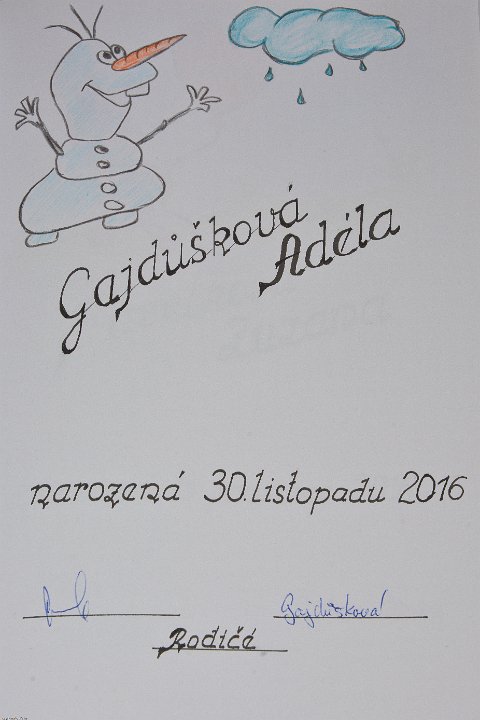 Gajdůšková
Adéla
narozená 30. listopadu 2016
Gajdůšková
Rodiče